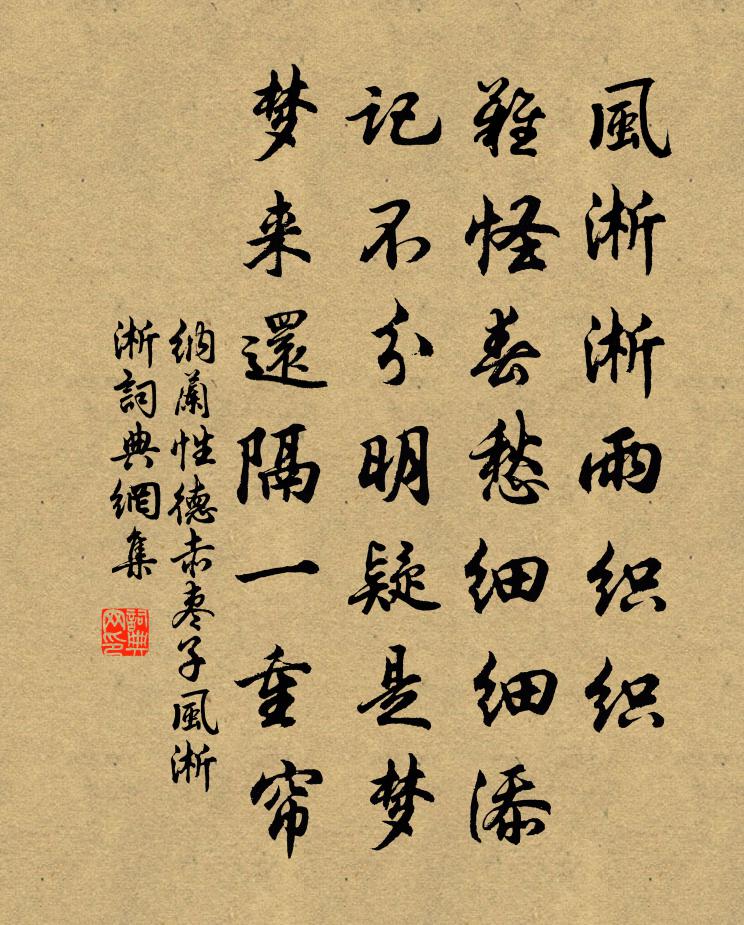 風淅淅雨织织
難怪春愁细细添
记不分明疑是梦
梦来還隔一重帘
纳蘭性德赤枣子風淅
淅詞典網集
詞典网印